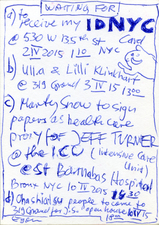 WAITING FOR
a) to
receive my IDNYC
@ 530 W 135th St Card
2 IV 2015 1:10 NYC
b) Ulla & Lilli Klinkhart
@ 319 Grand 3 IV 15 1:00
c) Manty Snow to sign
papers as health care
proxy for JEFF TURNER
@ the ICU (Intensive Care
Unit)
@ St Barnabas Hospital
Bronx NYC 10 IV 2015
d) people to come to
319 Grand for open house 10 IV 15